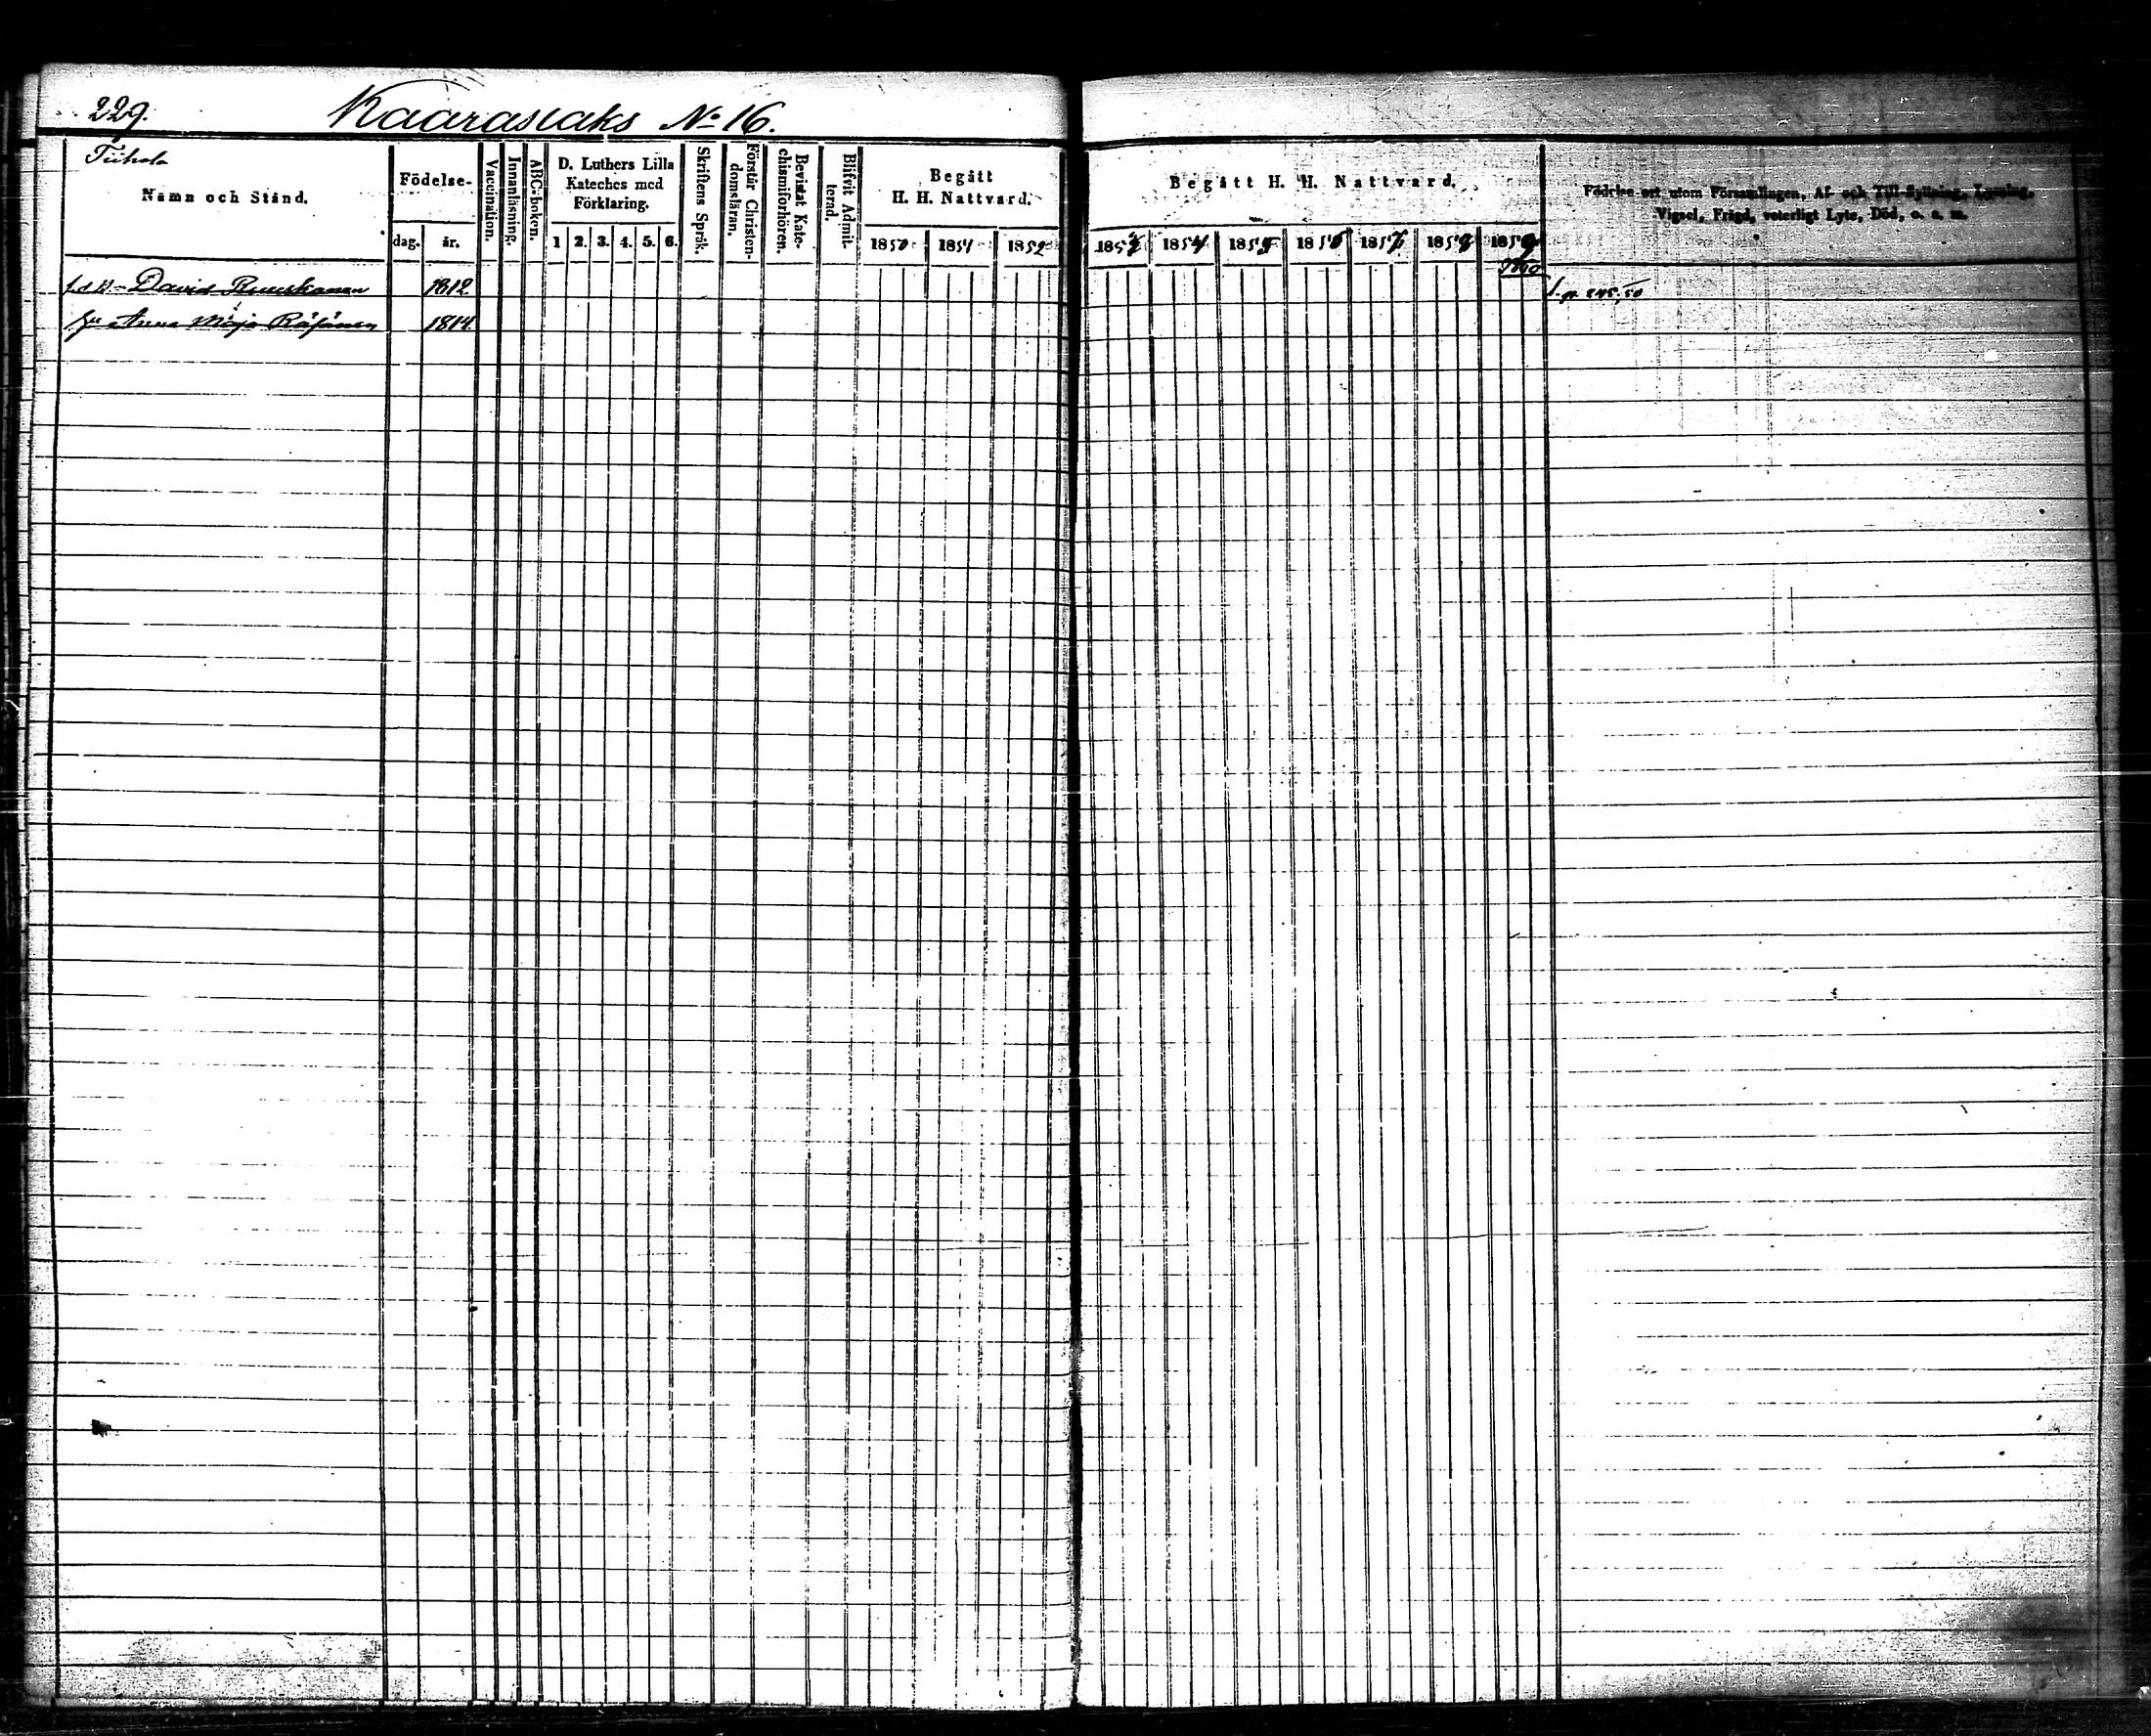 229.
Kaaraslaks № 16.
Tiihola
Namn och Stånd.
Födelse-
dag.
år.
Vaccination.
Innanläsning.
ABC-boken.
D. Luthers Lilla
Kateches med
Förklaring.
1 2. 3. 4. 5. 6.
Skriftens Språk.
Förstår Christen-
domsläran.
Bevistat Kate-
chismiförhören.
Blifvit Admit-
terad.
Begått
H. H. Nattvard.
1850 1851 1852
Begått H. H. Nattvard.
1853 1854 1855 1856 1857 1858 1859
1860
Födelse-ort utom Församlingen, Af- och Till-flyttning, Lysning,
Vigsel, Frägd, veterligt Lyte, Död, o. s. m.
David Ruuskanen 1812
Anna Maja Räsänen 1814.